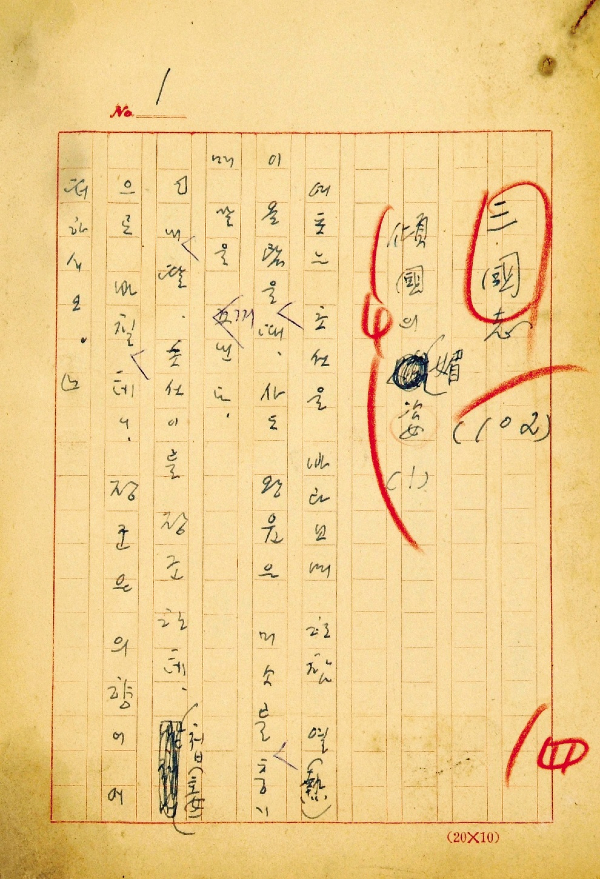 No. 1
三國志
(102)
傾國의 媚姿 (1)
여포는 초선을 바라보며 한참 열(熱)
이 올랐을때, 사도 왕윤은 미소를 풍기
며 말을 꺼낸다.
「내딸, 초선이를 장군한테, 첩(妾)
으로 바칠테니, 장군은 의향이 어
떠하시오.」
(20X10)